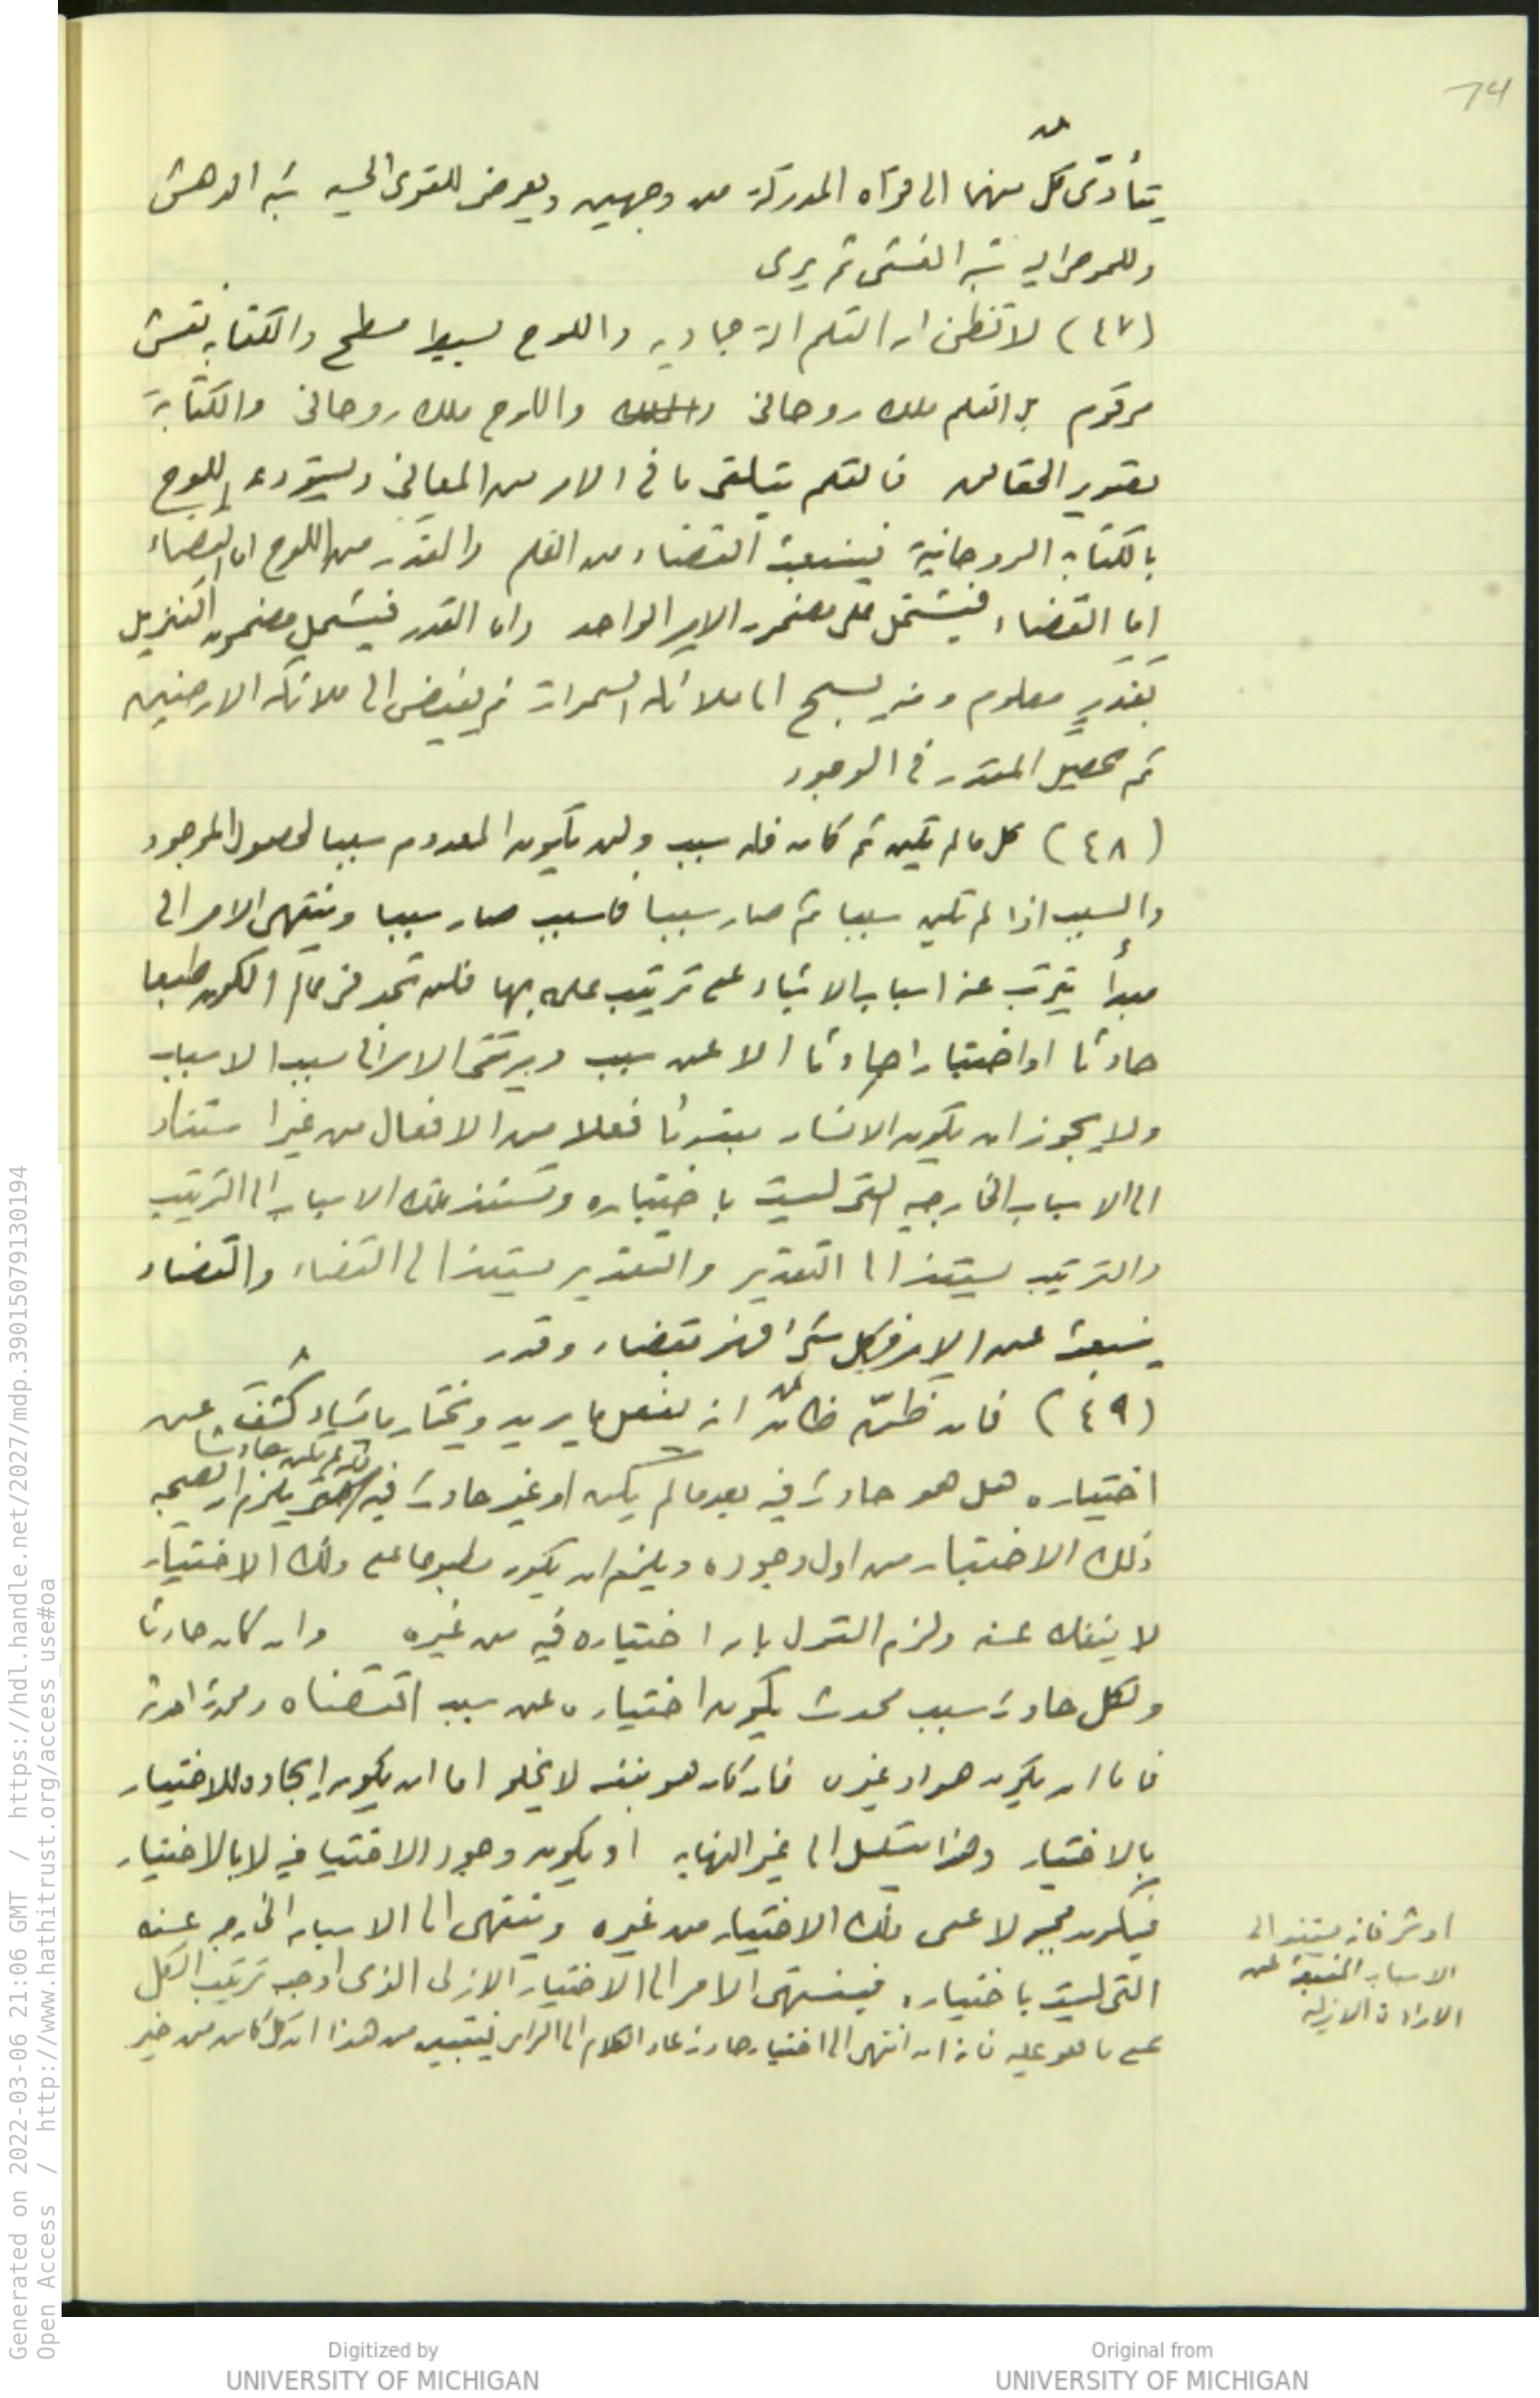 74
يتأدى كل منهما الى قواه المدركة من وجهين ويعرض للقوى الحسيه شبه الدهش
وللموحى اليه شبه الغشى ثم يرى
(٤٧) لا تظن ان القلم الة جماديه واللوح بسيط مسطح والكتابه نقش
مرقوم بل القلم ملك روحانى واللوح ملك روحانى والكتابة
تصوير الحقائق فالقلم يتلقى ما فى الامر من المعانى ويستودعه اللوح
بالكتابه الروحانية فينبعث القضاء من القلم والتقدير من اللوح
اما القضاء فيشتمل على مضمون الامر الواحد واما القدر فيشتمل مضمون التنزيل
بقدر معلوم ومنه يسبح الى ملائكه السموات ثم يفيض الى ملائكه الارضين
ثم يحصل المقدر فى الوجود
(٤٨) كل ما لم يكن ثم كان فله سبب ولن يكون المعدوم سببا لحصول الموجود
والسبب اذا لم يكن سببا ثم صار سببا فلسبب صار سببا وينتهى الامر الى
مبدأ يترتب عنه اسباب الاشياء على ترتيب علمه بها فلن تجد فى عالم الكون طبعا
حادثا او اختيارا حادثا الا عن سبب ويرتقى الامر الى سبب الاسباب
ولا يجوز ان يكون الانسان مبتدئا فعلا من الافعال من غير استناد
الى الاسباب الخارجيه التى ليست باختياره وتستند تلك الاسباب الى الترتيب
والترتيب يستند الى التقدير والتقدير يستند الى القضاء والقضاء
ينبعث عن الامر فكل شئ فهو بقضاء وقدر
(٤٩) فان ظن ظان انه يفعل ما يريد ويختار ما يشاء كشف عن
اختياره هل هو حادث فيه بعد ما لم يكن او غير حادث فيه فان لم يكن حادثا يلزم ان يصحبه
ذلك الاختيار من اول وجوده ويلزم ان يكون مطبوعا على ذلك الاختيار
لا ينفك عنه ولزم القول بان اختياره فيه من غيره وان كان حادثا
ولكل حادث سبب محدث يكون اختياره عن سبب اقتضاه ومحدث احدثه
فاما ان يكون هو او غيره فان كان هو بنفسه لا يخلو اما ان يكون ايجاده للاختيار
بالاختيار وهذا يتسلسل الى غير النهايه او يكون وجود الاختيا فيه لا بالاختيار
فيكون مجبولا على ذلك الاختيار من غيره وينتهى الى الاسباب الخارجه عنه
التى ليست باختياره فينتهى الامر الى الاختيار الازلى الذى اوجب ترتيب الكل
على ما هو عليه فانه ان انتهى الى اختيار حادث عاد الكلام الى الراس فيتبين من هذا ان كل كائن من خير
او شر فانه يستند الى
الاسباب المنبعثة عن
الارادة الازليه
Generated on 2022-03-06 21:06 GMT / https://hdl.handle.net/2027/mdp.39015079130194
Open Access / http://www.hathitrust.org/access_use#oa
Digitized by
UNIVERSITY OF MICHIGAN
Original from
UNIVERSITY OF MICHIGAN